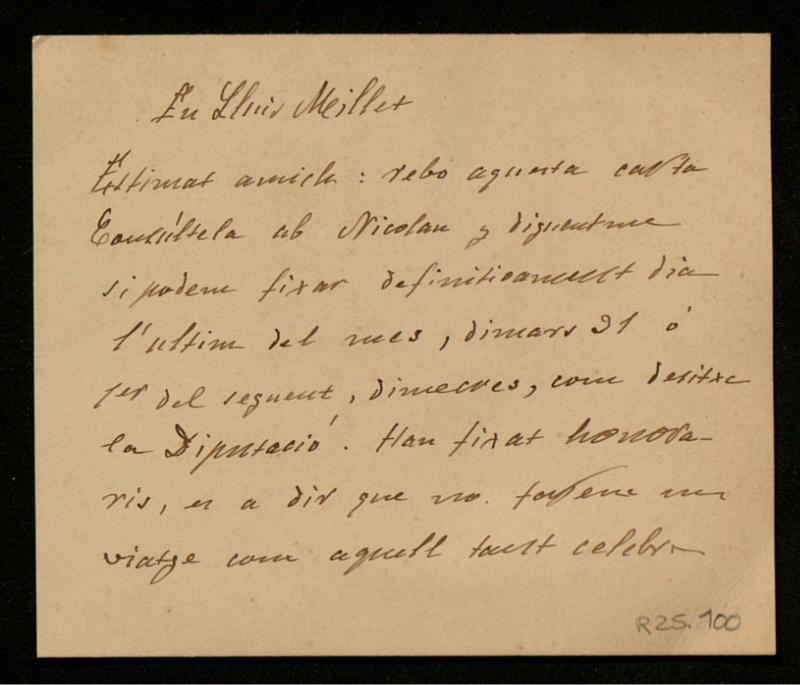 En Lluis Millet
Estimat amich : rebo aquesta carta
Consúltela ab Nicolau y diguentme
si podem fixar definitivament dia
l'ultim del mes, dimars 31 ó
1er del seguent, dimecres, com desitxa
la Diputació. Han fixat honora-
ris, es a dir que no farem un
viatge com aquell tant celebre
R25.100